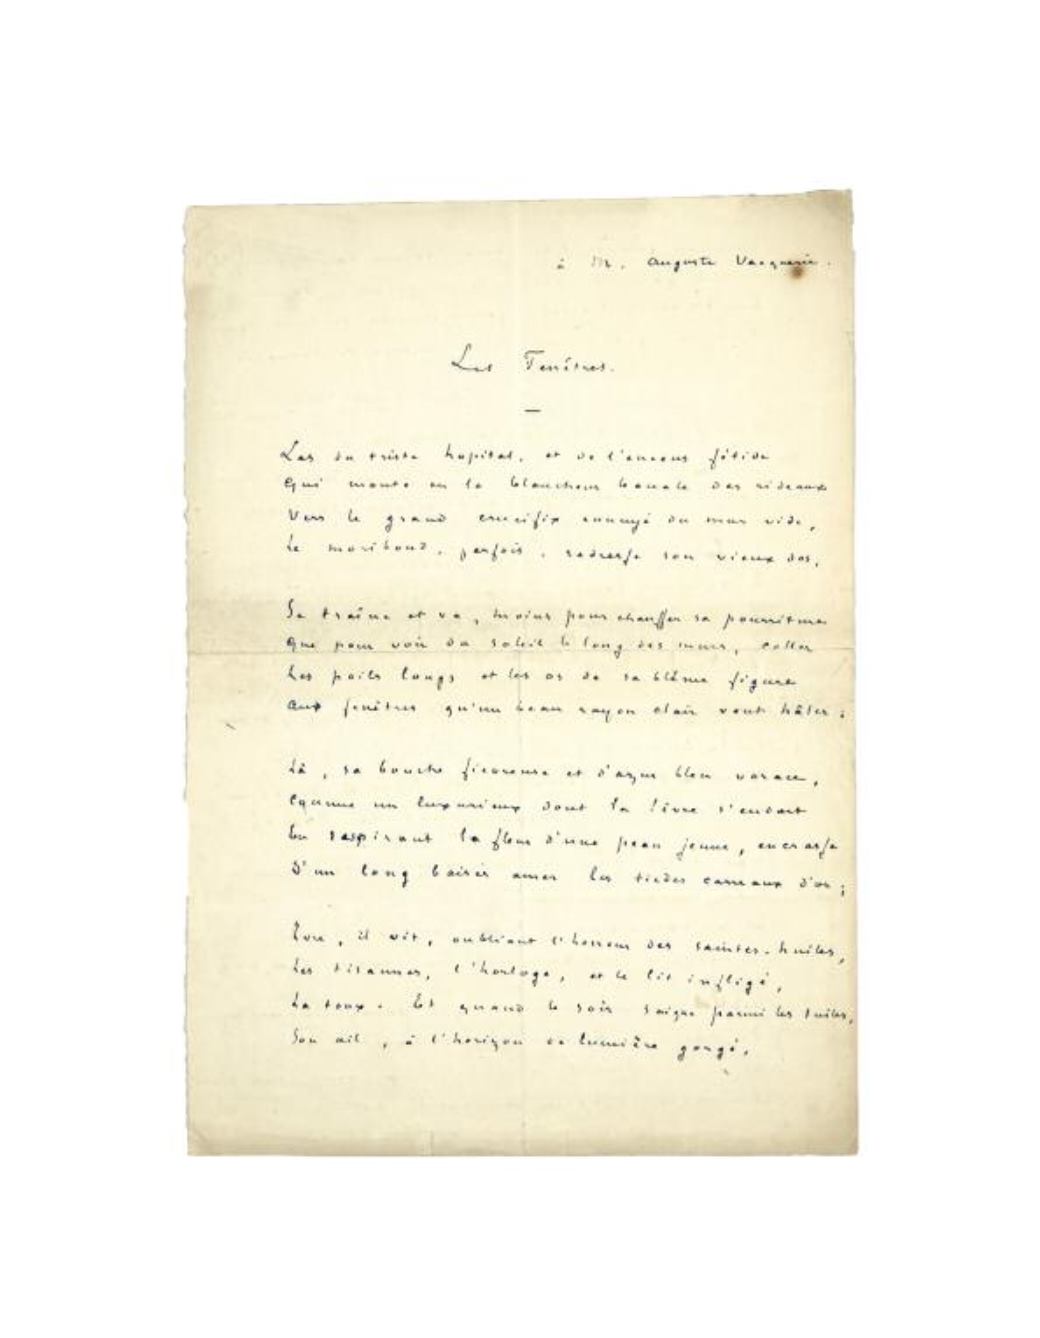 à M. Auguste Vacquerie.
Les Fenêtres.
Las du triste hopital, et de l'encens fétide
Qui monte en la blancheur banale des rideaux
Vers le grand crucifix ennuyé du mur vide,
Le moribond, parfois, redresse son vieux dos,
Se traîne et va, moins pour chauffer sa pourriture
Que pour voir du soleil le long des murs, coller
Les poils longs et les os de sa blême figure
Aux fenêtres qu'un beau rayon clair veut hâler ;
Là, sa bouche fiévreuse et d'azur bleu vorace,
Comme un luxurieux dont la lèvre s'endort
En respirant la fleur d'une peau jeune, encrasse
D'un long baiser amer les tièdes carreaux d'or ;
Ivre, il vit, oubliant l'horreur des saintes-huiles,
Les tisannes, l'horloge, et le lit infligé,
La toux. Et quand le soir saigne parmi les tuiles,
Son œil, à l'horizon de lumière gorgé,